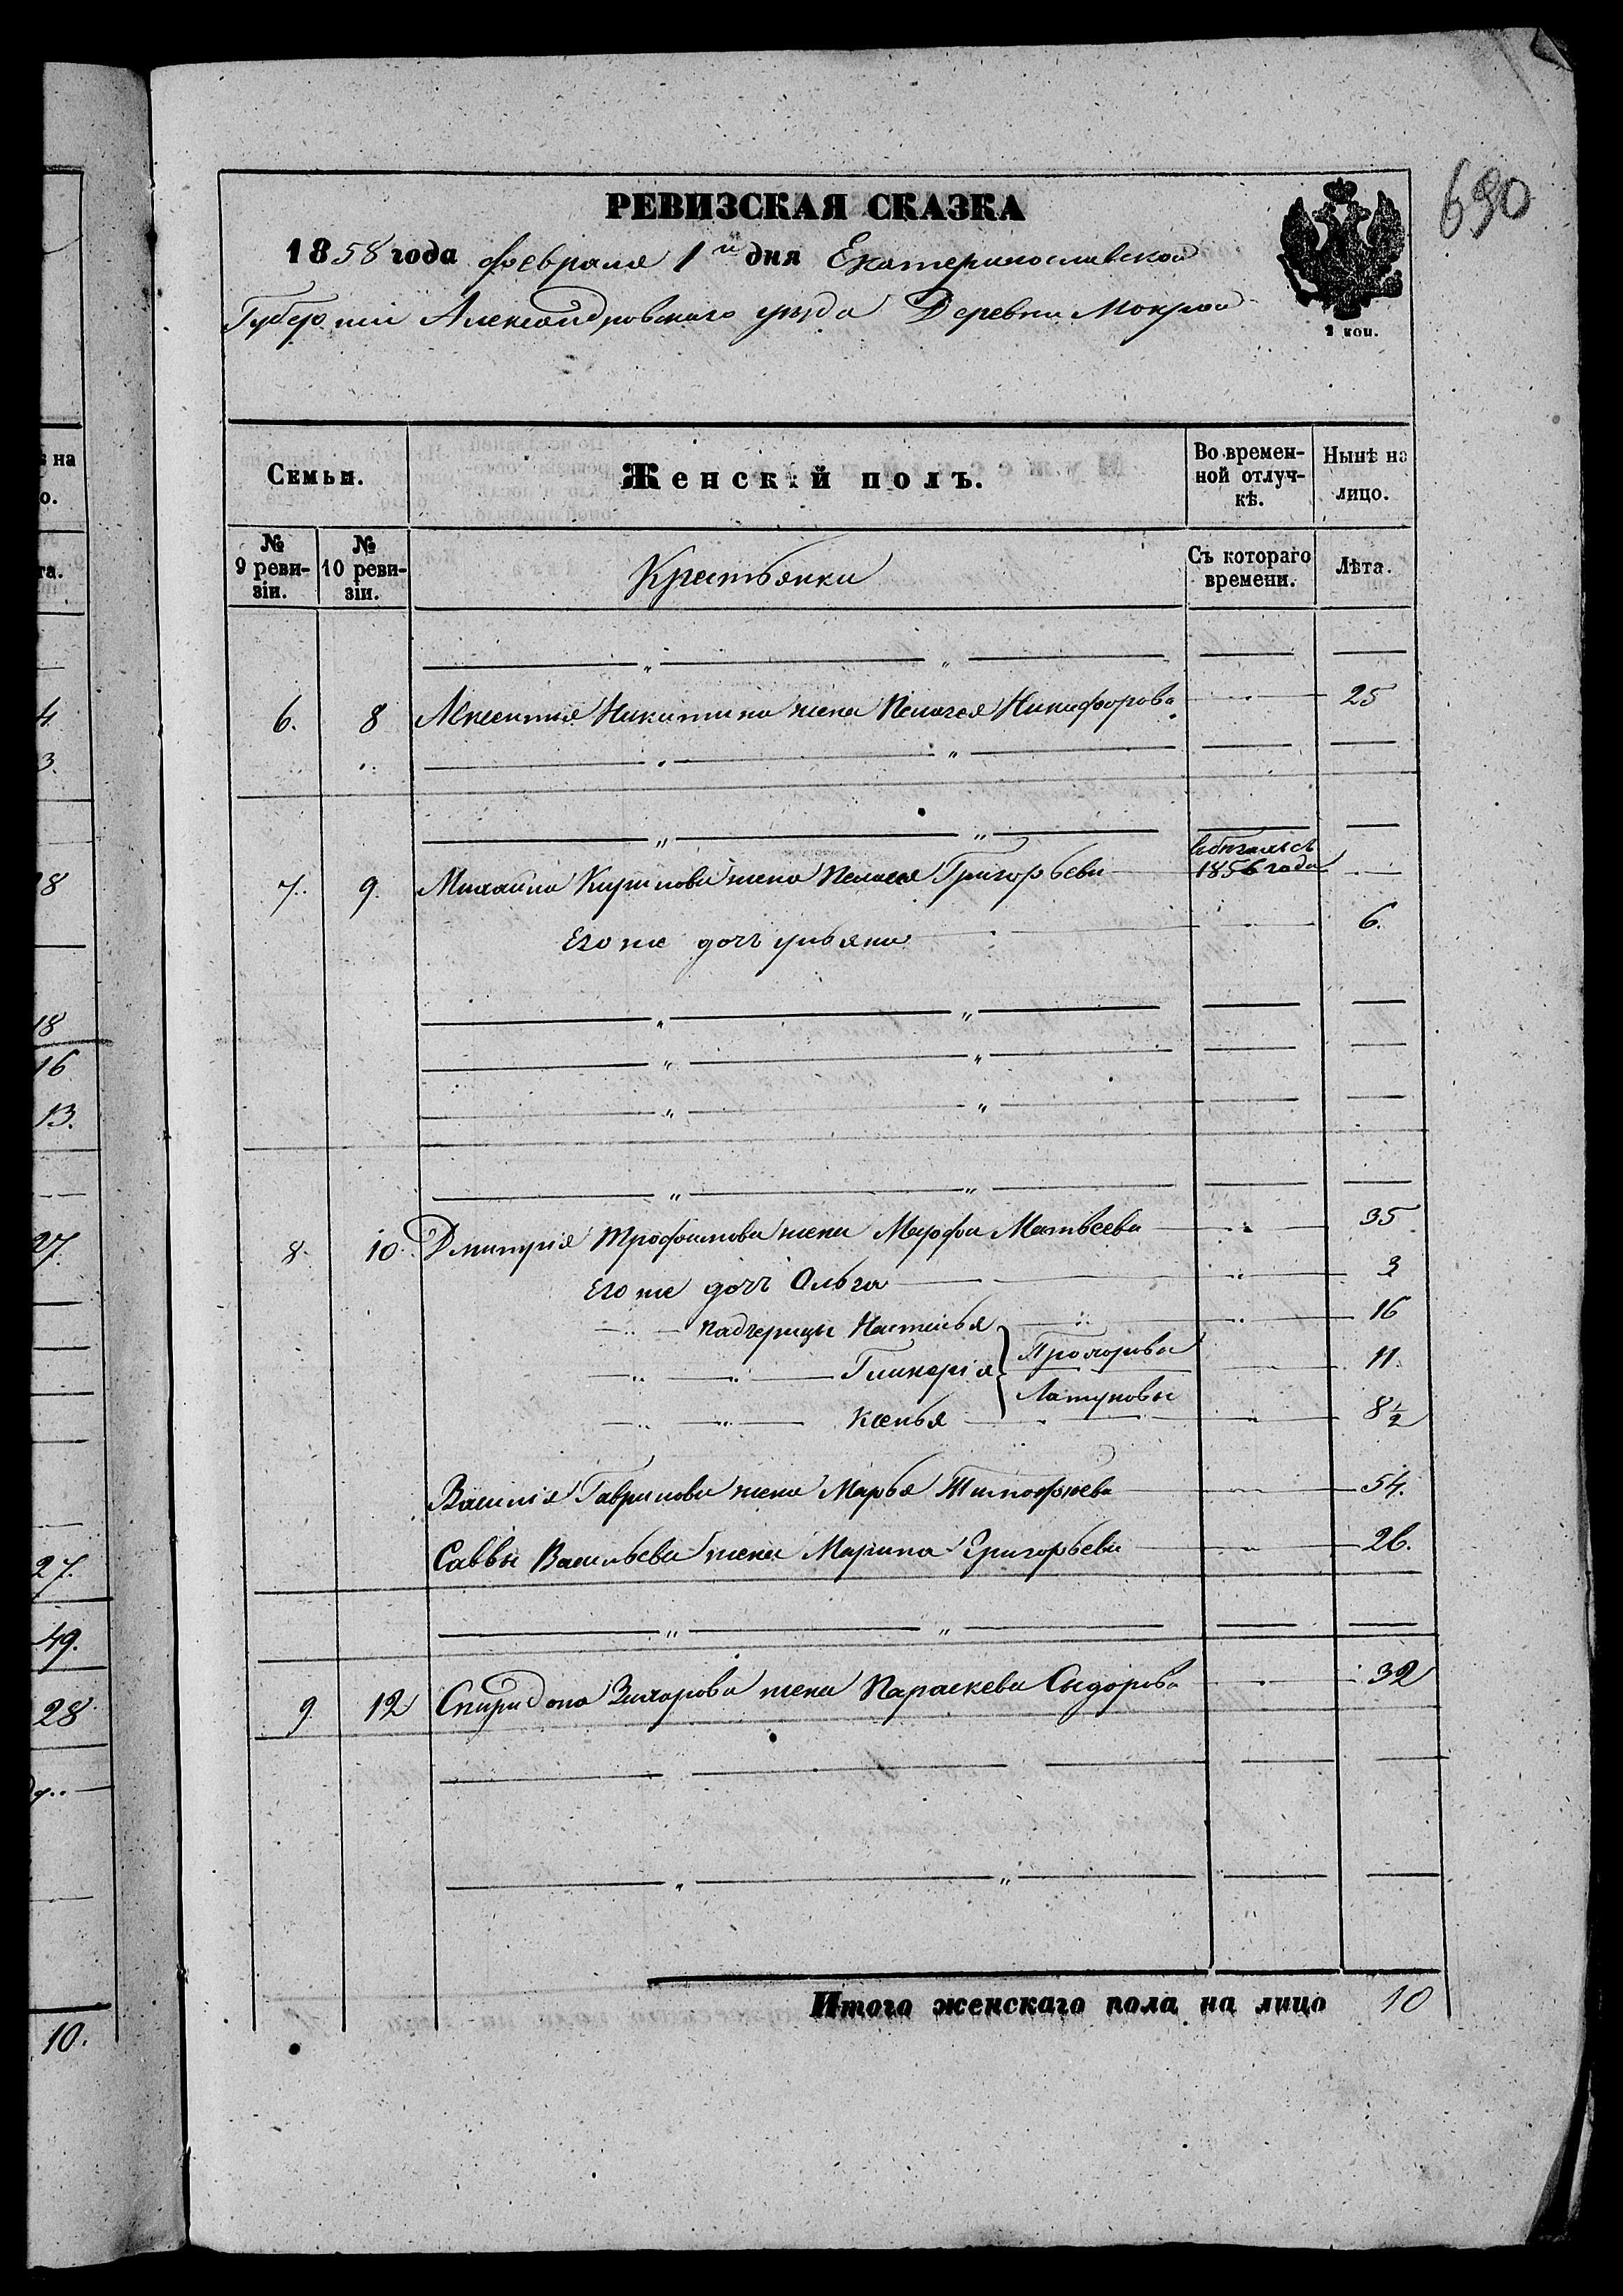 690
РЕВИЗСКАЯ СКАЗКА
1858 года февраля 1го дня Екатеринославской
Губернии Александровского уезда Деревни Мокрой
2 коп.
Семьи. Женскій полъ. Во времен-ной отлуч-кѣ. Нынѣ на лицо.
№ 9 реви-зіи. № 10 реви-зіи. Крестьянки Съ котораго времени. Лѣта.
6. 8 Никитина жена Пелагея Никифорова 25
7. 9. Михайла Кирилова жена Пелагея Григорьева въ бѣгахъ съ 1856 года
Его же дочь Ульяна 6.
8. 10. Дмитрія Трофимова жена Марфа Матвеева 35
Его же дочь Ольга 3
падчерицы Настасья 16
Гликерія Прохоровы 11.
Латуновы
Ксенья 8½
Василія Гаврилова жена Марья Тимофеева 54.
Саввы Васильева жена Марина Григорьева 26.
9. 12 Спиридона Захарова жена Параскева Сыдорова 32
Итого женскаго пола на лицо 10
на
о.
та.
4
3.
8
18
16
13.
27.
27.
49.
28
10.